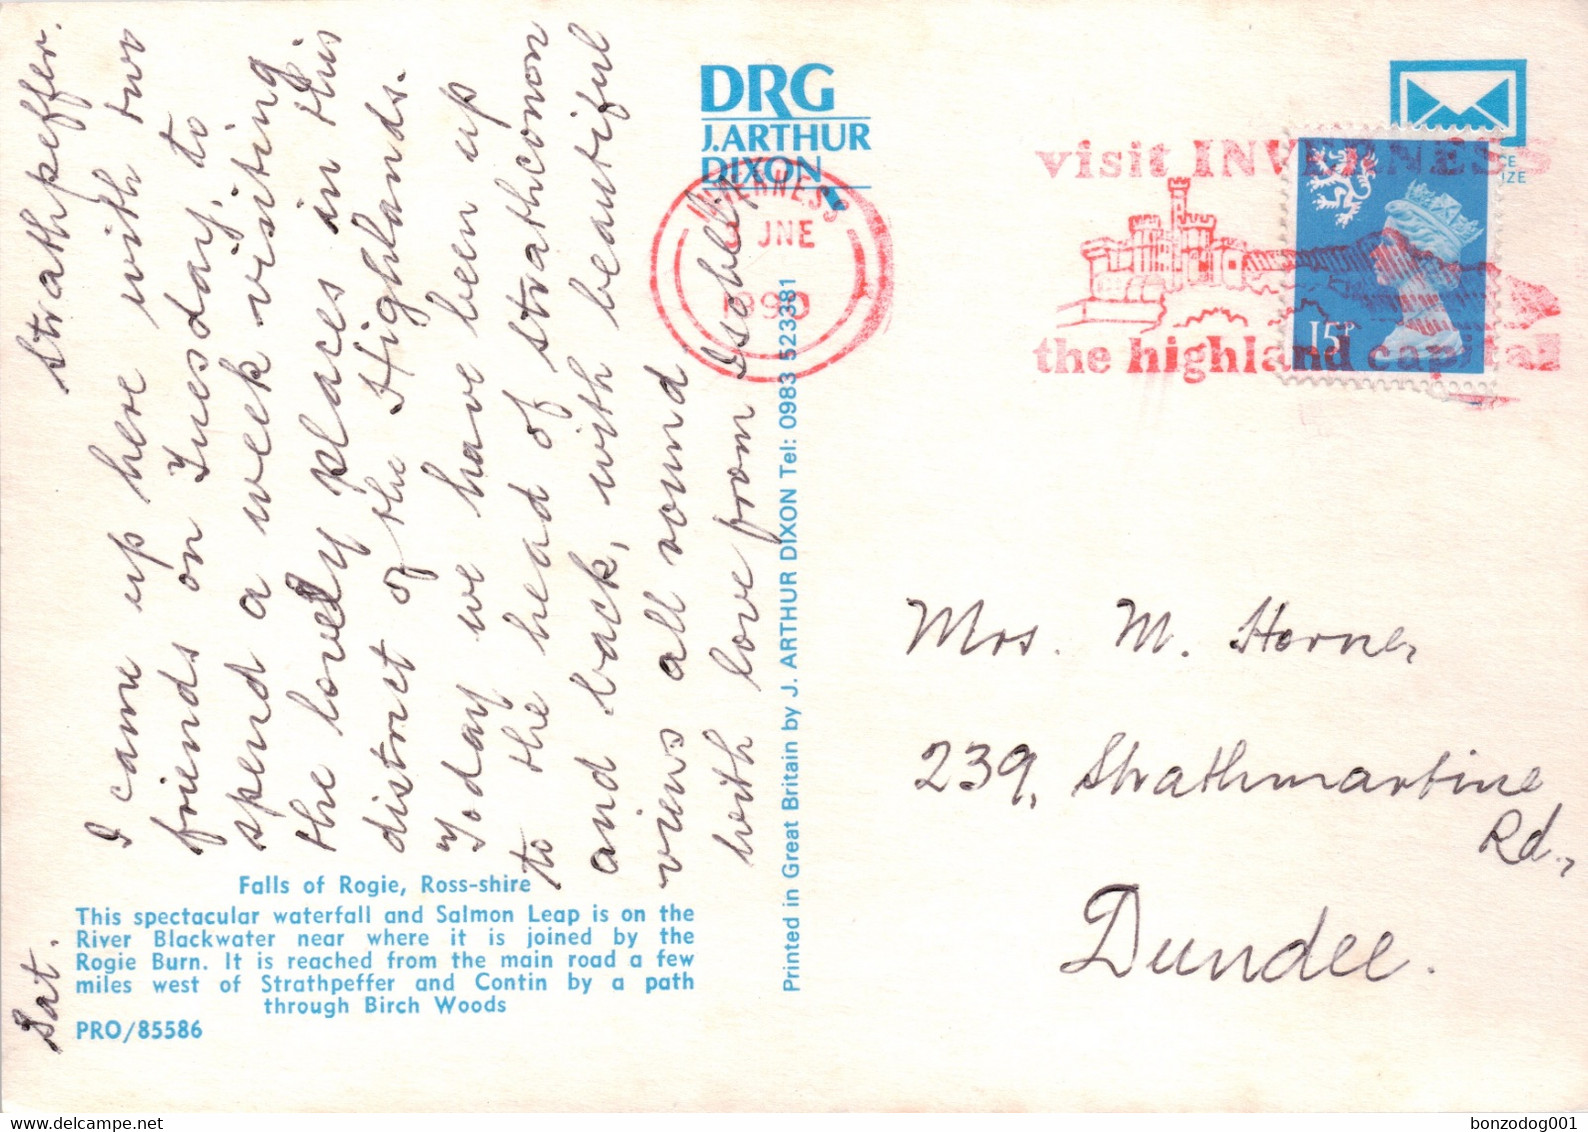 Sat.
Strathpeffer.
I came up here with two
friends on Tuesday, to
spend a week visiting
the lovely places in this
district of the Highlands.
Today we have been up
to the head of Strathconon
and back, with beautiful
views all round
with love from Isobel
Falls of Rogie, Ross-shire
This spectacular waterfall and Salmon Leap is on the
River Blackwater near where it is joined by the
Rogie Burn. It is reached from the main road a few
miles west of Strathpeffer and Contin by a path
through Birch Woods
PRO/85586
DRG
J.ARTHUR
DIXON
Printed in Great Britain by J. ARTHUR DIXON Tel: 0983 523381
INVERNESS
JNE
1990
visit INVERNESS
the highland capital
15P
Mrs. M. Horner,
239, Strathmartine
Rd.,
Dundee.
bonzodog001